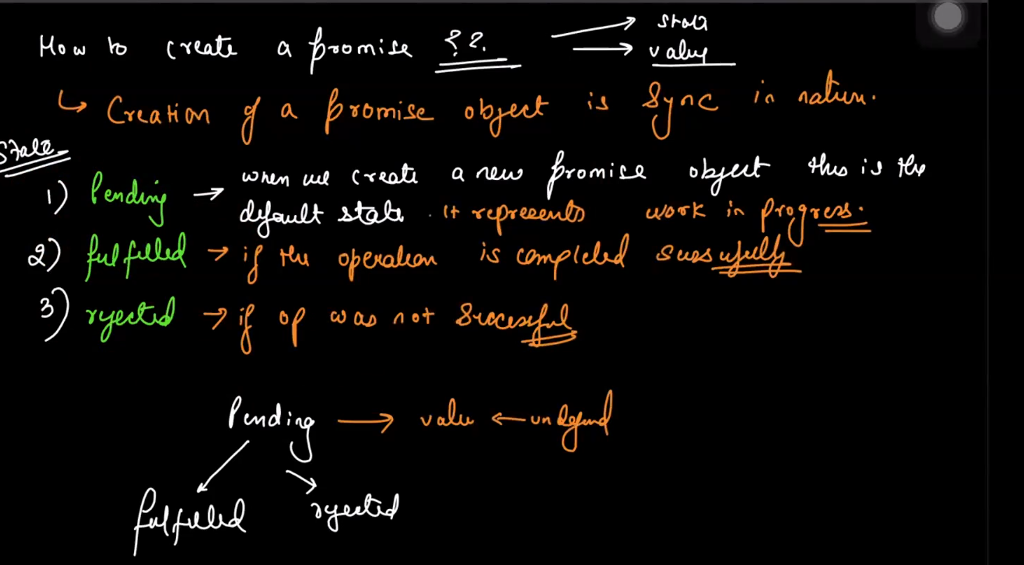 How to create a promise ??.
state
value
Creation of a promise object is Sync in nature.
State
1) Pending → when we create a new promise object this is the
default state. It represents work in progress.
2) fulfilled → if the operation is completed sucessfully
3) rejected → if op was not Successful
Pending → value ← undefined
fulfilled rejected